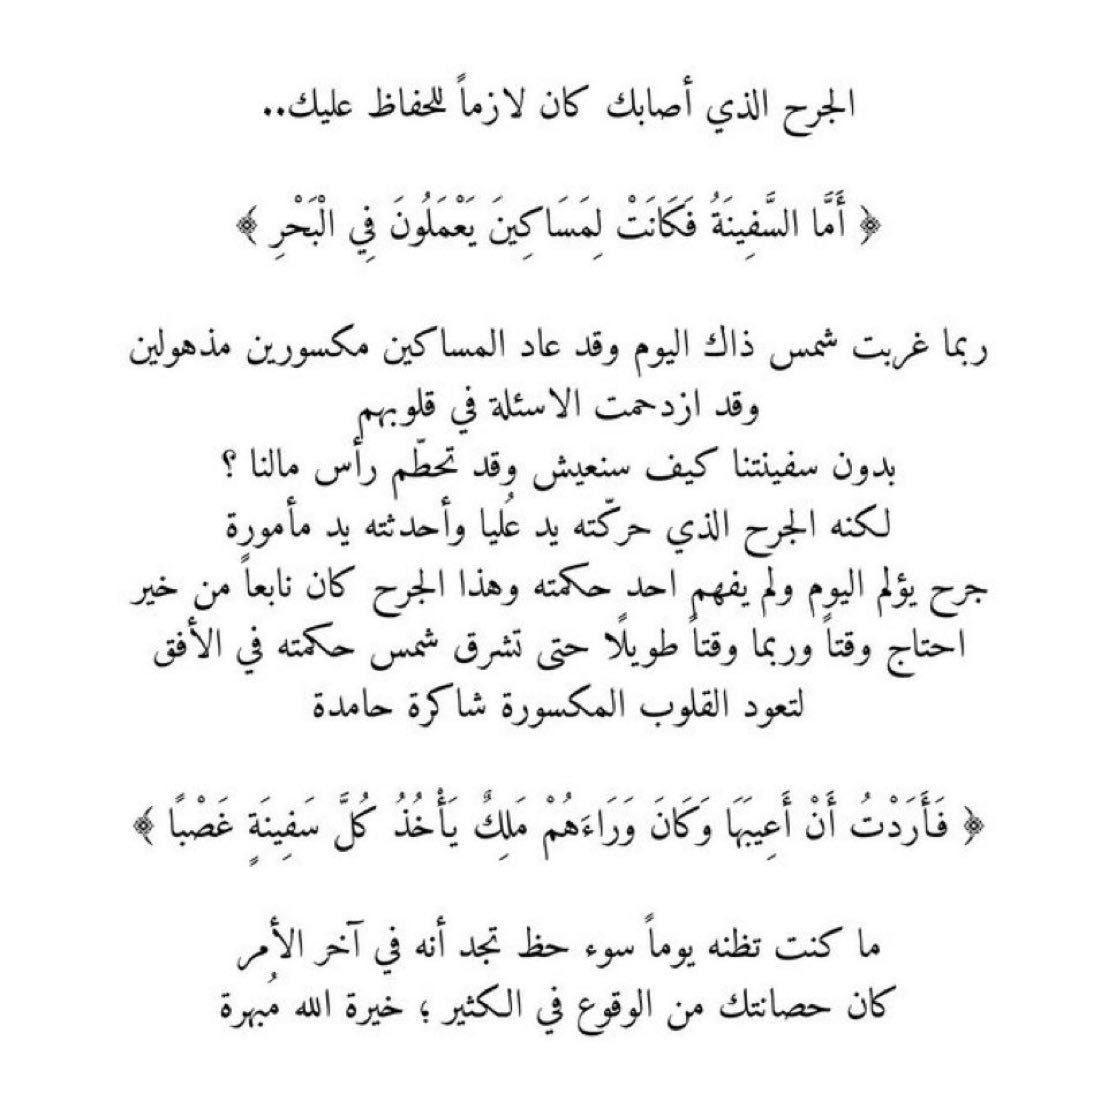 الجرح الذي أصابك كان لازماً للحفاظ عليك..
﴿ أَمَّا السَّفِينَةُ فَكَانَتْ لِمَسَاكِينَ يَعْمَلُونَ فِي الْبَحْرِ ﴾
ربما غربت شمس ذاك اليوم وقد عاد المساكين مكسورين مذهولين
وقد ازدحمت الاسئلة في قلوبهم
بدون سفينتنا كيف سنعيش وقد تحطّم رأس مالنا ؟
لكنه الجرح الذي حركّته يد عُليا وأحدثته يد مأمورة
جرح يؤلم اليوم ولم يفهم احد حكمته وهذا الجرح كان نابعاً من خير
احتاج وقتاً وربما وقتاً طويلًا حتى تشرق شمس حكمته في الأفق
لتعود القلوب المكسورة شاكرة حامدة
﴿ فَأَرَدْتُ أَنْ أَعِيبَهَا وَكَانَ وَرَاءَهُمْ مَلِكٌ يَأْخُذُ كُلَّ سَفِينَةٍ غَصْبًا ﴾
ما كنت تظنه يوماً سوء حظ تجد أنه في آخر الأمر
كان حصانتك من الوقوع في الكثير ؛ خيرة الله مُبهرة